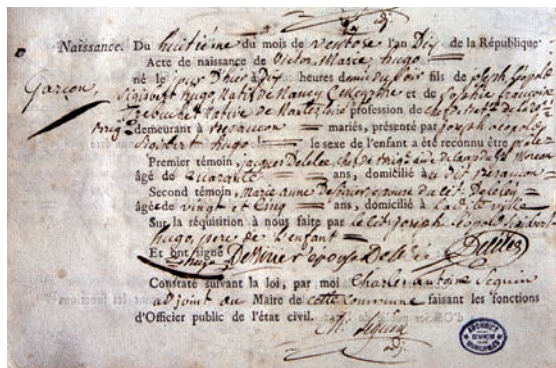 adj.
Naissance. Du huitième du mois de Ventose l'an Dix de la République
Garçon,
Acte de naissance de Victor, Marie, hugo
né le jour D'hier à Dix heures demie du soir fils de joseph, léopold
Sigisbert hugo, Natif de Nancy et de Sophie françoise
Trebuchet Native de Nantes profession de chef de
demeurant à Besancon mariés, présenté par joseph léopold
Sigisbert hugo le sexe de l'enfant a été reconnu être male
Premier témoin, jacques Delelée, chef de Brigade aide de camp du Moreau
âgé de quarante ans, domicilié au dit Besancon
Second témoin, Marie anne Dessirier epouse du cit. Delelée
âgée de vingt et Cinq ans, domicilié à la de ville
Sur la réquisition à nous faite par le cit. joseph léopold Sigisbert
hugo, pere de l'enfant
Et ont signé
hugo Dessirier epouse Delelée Delelée
Constaté suivant la loi, par moi Charles antoine Seguin
adjoint au Maire de cette Commune faisant les fonctions
d'Officier public de l'état civil.
Ch. Seguin
adj.
ARCHIVES
BESANCON
MUNICIPALES